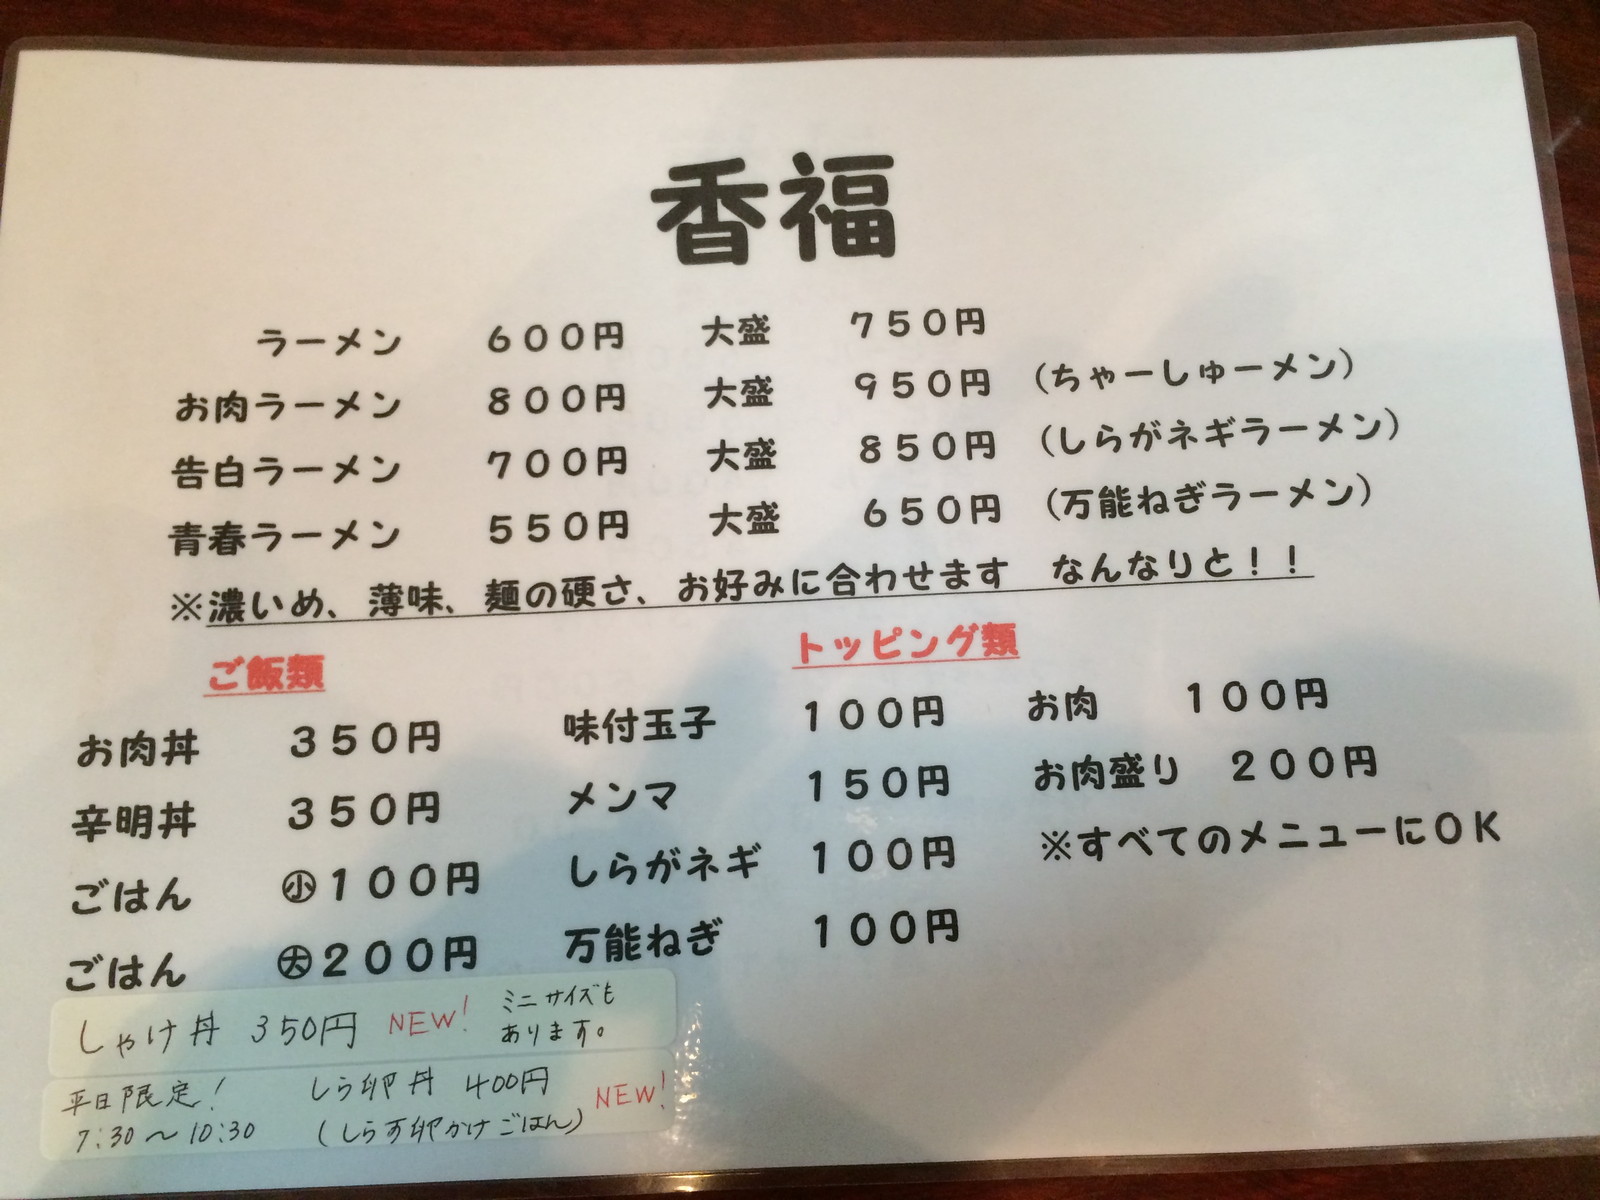 香福
ラーメン 600円 大盛 750円
お肉ラーメン 800円 大盛 950円 (ちゃーしゅーメン)
告白ラーメン 700円 大盛 850円 (しらがネギラーメン)
青春ラーメン 550円 大盛 650円 (万能ねぎラーメン)
※濃いめ、薄味、麺の硬さ、お好みに合わせます なんなりと！！
ご飯類
お肉丼 350円
辛明丼 350円
ごはん ㊙小100円
ごはん 大200円
しゃけ丼 350円 NEW! ミニサイズも
あります。
平日限定! しら卵丼 400円 NEW!
7:30～10:30 (しらす卵かけごはん)
トッピング類
味付玉子 100円 お肉 100円
メンマ 150円 お肉盛り 200円
しらがネギ 100円 ※すべてのメニューにOK
万能ねぎ 100円